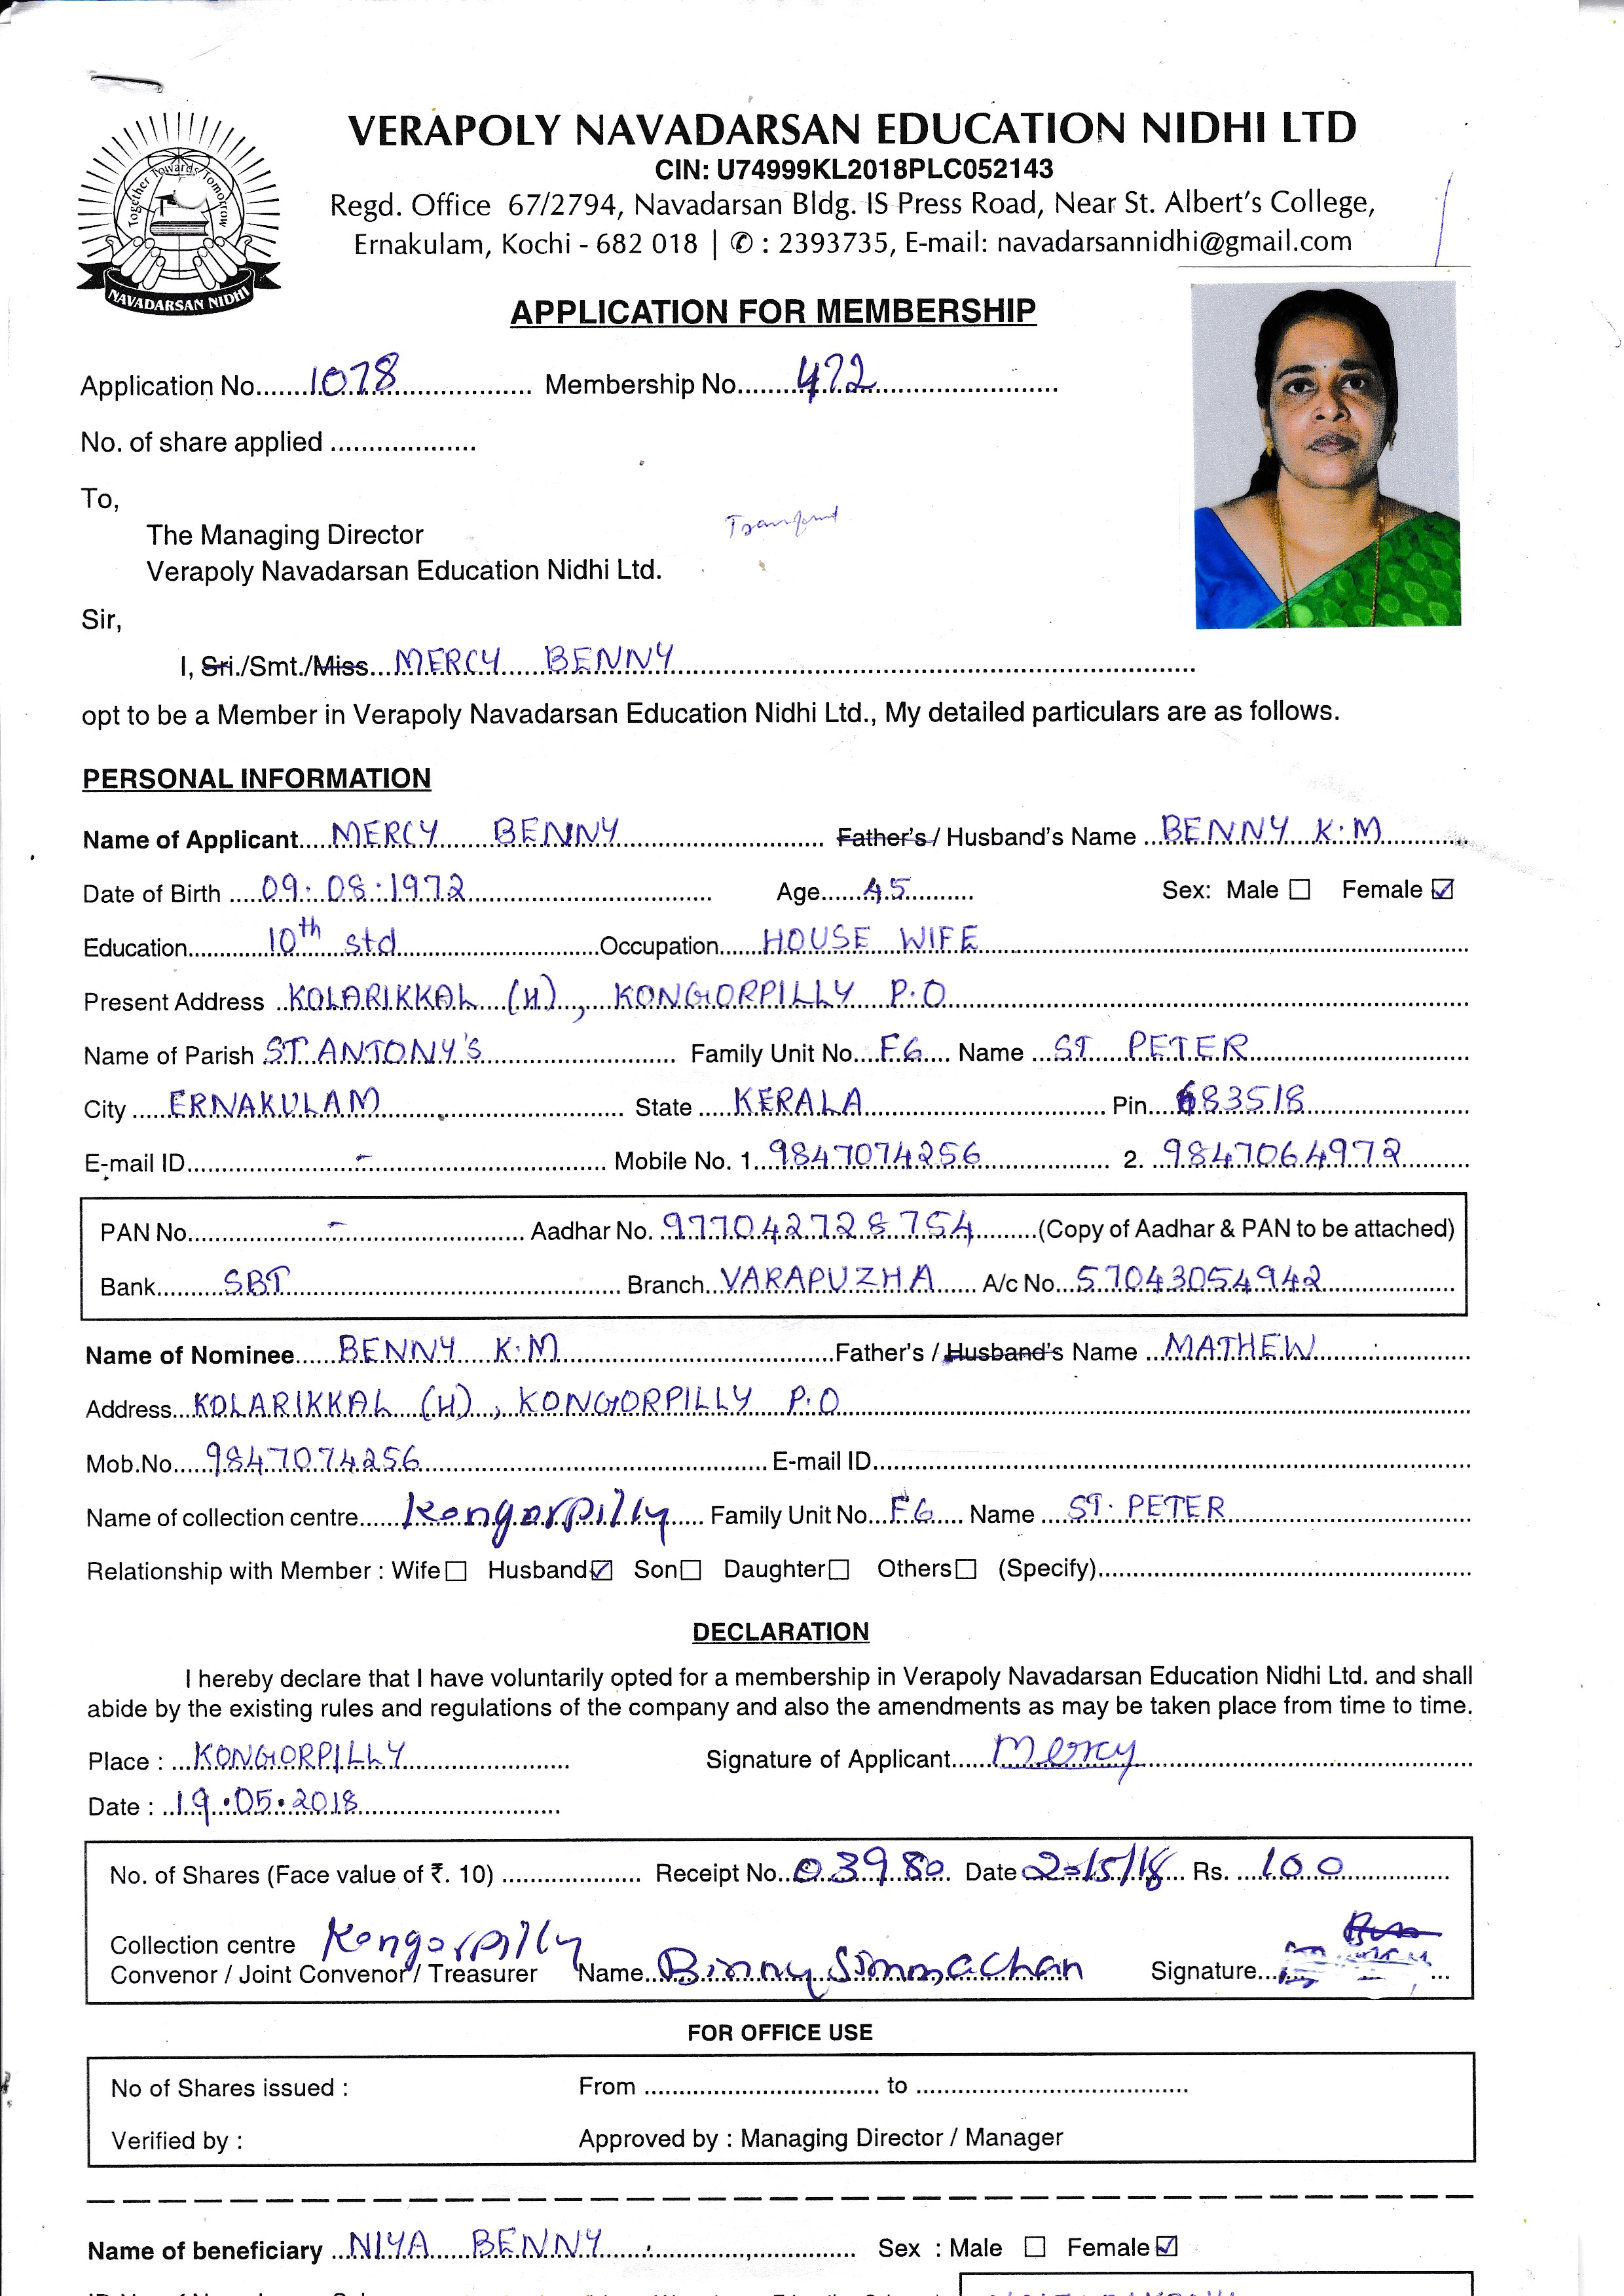 VERAPOLY NAVADARSAN EDUCATION NIDHI LTD
CIN: U74999KL2018PLC052143
Regd. Office 67/2794, Navadarsan Bldg. IS Press Road, Near St. Albert's College,
Ernakulam, Kochi - 682 018 | ✆ : 2393735, E-mail: navadarsannidhi@gmail.com
Together Towards Tomorrow
NAVADARSAN NIDHI
APPLICATION FOR MEMBERSHIP
Application No. 1078 Membership No. 472
No. of share applied
To,
The Managing Director
Verapoly Navadarsan Education Nidhi Ltd.
Sir,
I, Sri./Smt./Miss. MERCY BENNY
opt to be a Member in Verapoly Navadarsan Education Nidhi Ltd., My detailed particulars are as follows.
PERSONAL INFORMATION
Name of Applicant MERCY BENNY Father's / Husband's Name BENNY K.M
Date of Birth 09.08.1972 Age 45 Sex: Male ☐ Female ☑
Education 10th std Occupation HOUSE WIFE
Present Address KOLARIKKAL (H), KONGORPILLY P.O
Name of Parish ST. ANTONY'S Family Unit No. F6 Name ST PETER
City ERNAKULAM State KERALA Pin 683518
E-mail ID - Mobile No. 1. 9847074256 2. 9847064972
PAN No. - Aadhar No. 977042728754 (Copy of Aadhar & PAN to be attached)
Bank SBT Branch VARAPUZHA A/c No. 57043054942
Name of Nominee BENNY K.M Father's / Husband's Name MATHEW
Address KOLARIKKAL (H), KONGORPILLY P.O
Mob.No. 9847074256 E-mail ID
Name of collection centre Kongorpilly Family Unit No. F6 Name ST. PETER
Relationship with Member : Wife ☐ Husband ☑ Son ☐ Daughter ☐ Others ☐ (Specify)
DECLARATION
I hereby declare that I have voluntarily opted for a membership in Verapoly Navadarsan Education Nidhi Ltd. and shall
abide by the existing rules and regulations of the company and also the amendments as may be taken place from time to time.
Place : KONGORPILLY Signature of Applicant Mercy
Date : 19.05.2018
No. of Shares (Face value of ₹. 10) Receipt No. 03980 Date 20/5/18 Rs. 100
Collection centre Kongorpilly
Convenor / Joint Convenor / Treasurer Name Binny Simmachan Signature
FOR OFFICE USE
No of Shares issued : From to
Verified by : Approved by : Managing Director / Manager
Name of beneficiary NIYA BENNY Sex : Male ☐ Female ☑